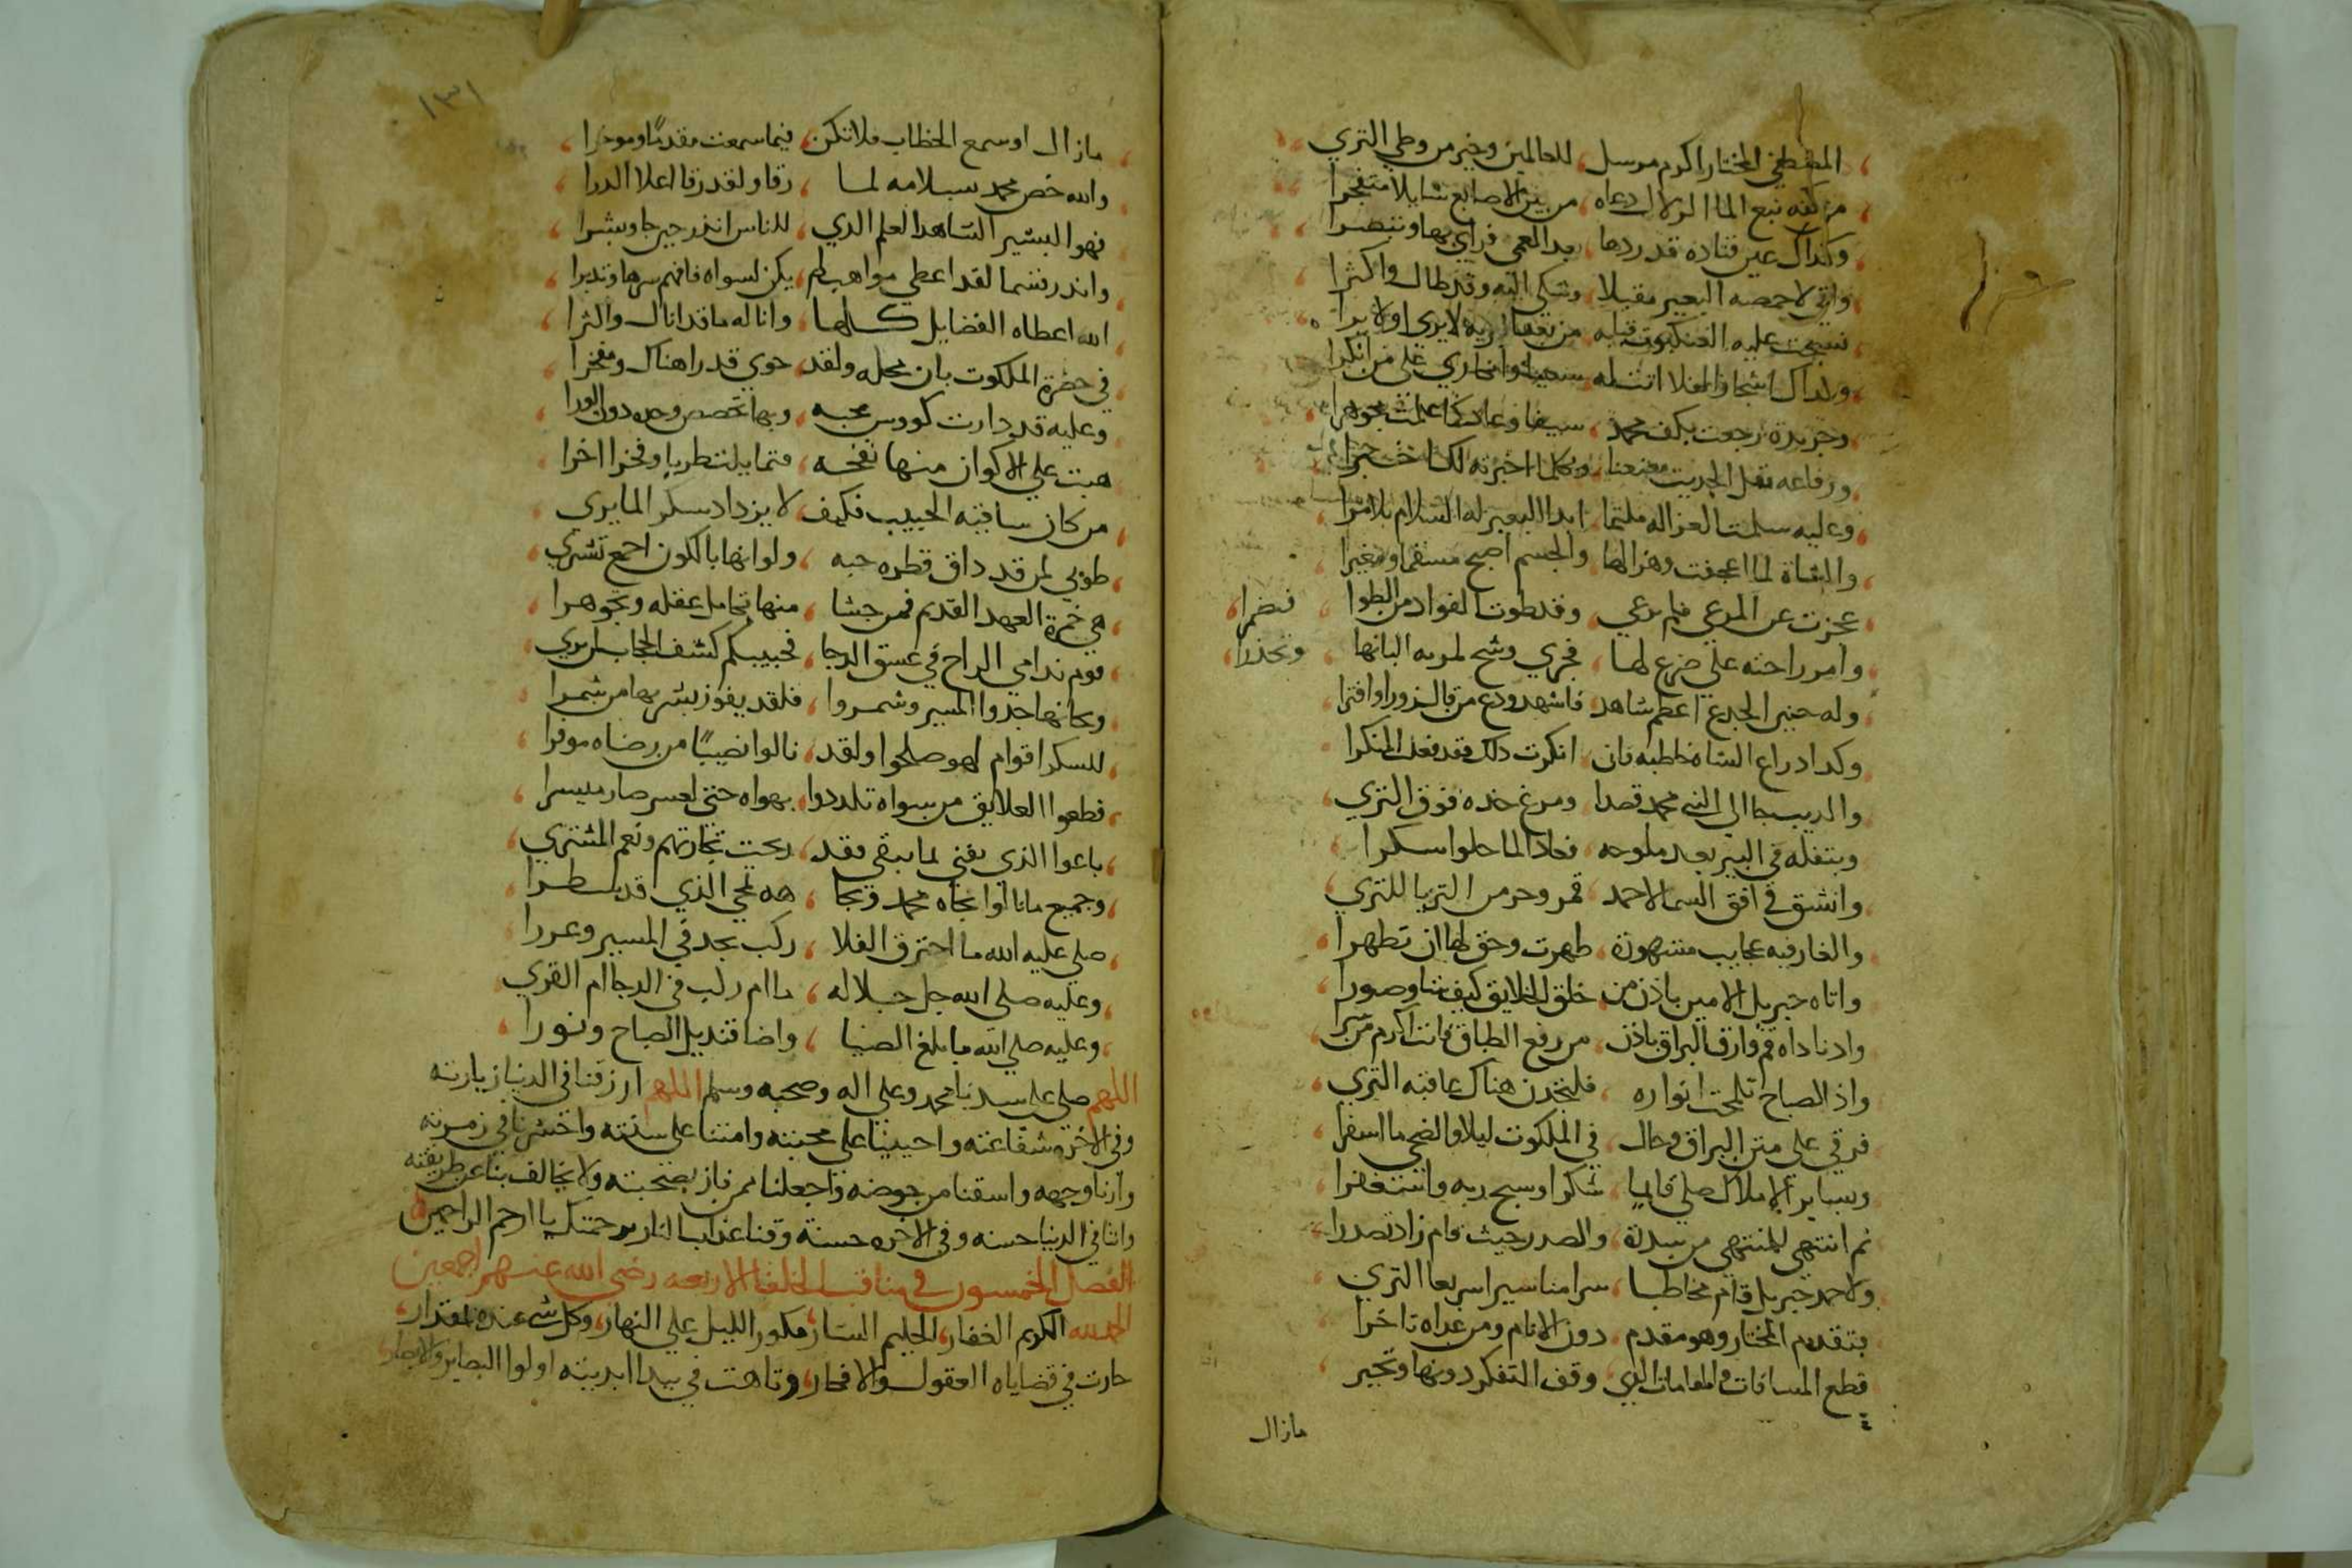 المصطفي المختار اكرم مرسل ، للعالمين وخير من وطي التري
من كفه نبع الما الزلال دعاه ، من بين الاصابع سايلا متفجرا
وكذاك عين قتاده قد ردها ، بعد العمي فراي بها وتبصرا
واتي لاحمصه البعير مقبلا ، وشكي اليه وقد طال واكثرا
نسجت عليه العنكبوت قبله من بعد لا يري اولا يرا
ولداك اشجار الفلا اتت له على من انكرا
وجريدة رجعت بكف محمد ، سيفا وعادت كما علمت مجوهرا
ورفاعه نقل الحديت معنعنا ، وكلما اخبرته لك اخبرا
وعليه سلمت الغزاله ملتما ، ابدا البعير له السلام بلا مرا
والشاة لما اعجفت وهزالها ، والجسم اصبح مسقما ومغيرا
عجزت عن المرعي فلم ترعي ، وقد طوت الفواد من الطوا ، فتضمرا
وامر راحته علي ضرع لها ، فجري وشح لمربه البانها ، وتحدرا
وله حنين الجدع اعظم شاهد ، فاشهد ودع من قال زورا وافترا
وكدا دراع الشاه خاطبه فان ، انكرت دلك فقد فعلت المنكرا
والديب جا الي النبي محمد قصدا ، ومرغ خده فوق التري
وبتفله في البير بعد ملوحه ، فعاد الما حلوا سكرا
وانشق في افق السما لاحمد ، قمر وخر من التريا للتري
والغار فيه عجايب مشهورة ، ظهرت وحق لها ان تظهرا
واتاه جبريل الامين باذن من ، خلق الخلايق كيف شا وصورا
واد ناداه قم وارق البراق باذن ، من رفع الطباق فانت اكرم من سرا
واذ الصباح تبلجت انواره ، فلتحمدن هناك عاقبه السري
فرقي علي متن البراق وجال ، في الملكوت ليلا والضحي ما اسفرا
وبساير الاملاك صلي قايما ، شكرا وسبح ربه واستغفرا
تم انتهي للمنتهي من سدرة ، والصدر حيث قام زاد تصدرا
ولاحمد جبريل قام مخاطبا ، سرامنا سيرا سريعا التري
بتقدم المختار وهو مقدم ، دون الانام ومن عداه تاخرا
قطع المسافات والمقامات الذي ، وقف التفكر دونها وتحير
مازال
١٣١
مازال اوسمع الخطاب فلا تكن ، فيما سمعت مقدما وموخرا
والله خص محمد بسلامه لما ، رقا ولقد رقا اعلا الدرا
فهو البشير الشاهد العلم الدي ، للناس انذر حين جا وبشرا
وانذر بسما لقد اعطي مواهب لم ، يكن لسواه فافهم سرها وتدبرا
الله اعطاه الفضايل كلها ، واناله ما قد انال واثرا
في حضرة الملكوت بان محله ولقد ، حوي قدرا هناك ومفخرا
وعليه قد دارت كووس محبه ، وبها تخصص وحده دون الورا
هبت علي الاكوان منها نفحه ، فتمايلت طربا وفخرا اخرا
من كان ساقيه الحبيب فكيف ، لا يزداد سكر الما يري
طوبي لمن قد داق قطره حبه ، ولو انها بالكون اجمع تشتري
هي خمرة العهد القديم فمن حشا ، منها تحامل عقله وتجوهرا
قوم ندامي الراح في غسق الدجا ، فحبيبكم كشف الحجاب لمن يري
وبحانها جدوا المسير وشمروا ، فلقد يفوز بشربها من شمرا
للسكر اقوام لهو صلحوا ولقد ، نالوا نصيبا من رضاه موفرا
قطعوا العلايق من سواه تلددوا ، بهواه حتي العسر صار ميسرا
باعوا الذي يفني لما يبقي فقد ، ربحت تجارتهم ونعم المشتري
وجميع ما نالوا بجاه محمد وبجا ، هه نجي الذي قد سطرا
صلي عليه الله ما اخترق الفلا ، ركب يجد في المسير وعررا
وعليه صلي الله جل جلاله ، ما ام ركب في الدجا ام القري
وعليه صلي الله ما بلغ الضيا ، واضا قنديل الصباح ونورا
اللهم صلي علي سيدنا محمد وعلي اله وصحبه وسلم اللهم ارزقنا في الدنيا زيارته
وفي الاخره شفاعته واحيينا علي محبته وامتنا علي سنته واحشرنا في زمرته
وارنا وجهه واسقنا من حوضه واجعلنا ممن فاز بصحبته ولا تخالف بنا عن طريقته
واتنا في الدنيا حسنه وفي الاخره حسنة وقنا عذاب النار برحمتك يا ارحم الراحمين
الفصل الخمسون في مناقب الخلفا الاربعه رضي الله عنهم اجمعين
الحمد لله الكريم الغفار ، الحليم الستار ، مكور الليل علي النهار ، وكل شي عنده بمقدار ،
حارت في قضاياه العقول والافكار ، وتاهت في بيدا ابديته اولوا البصاير والابصار